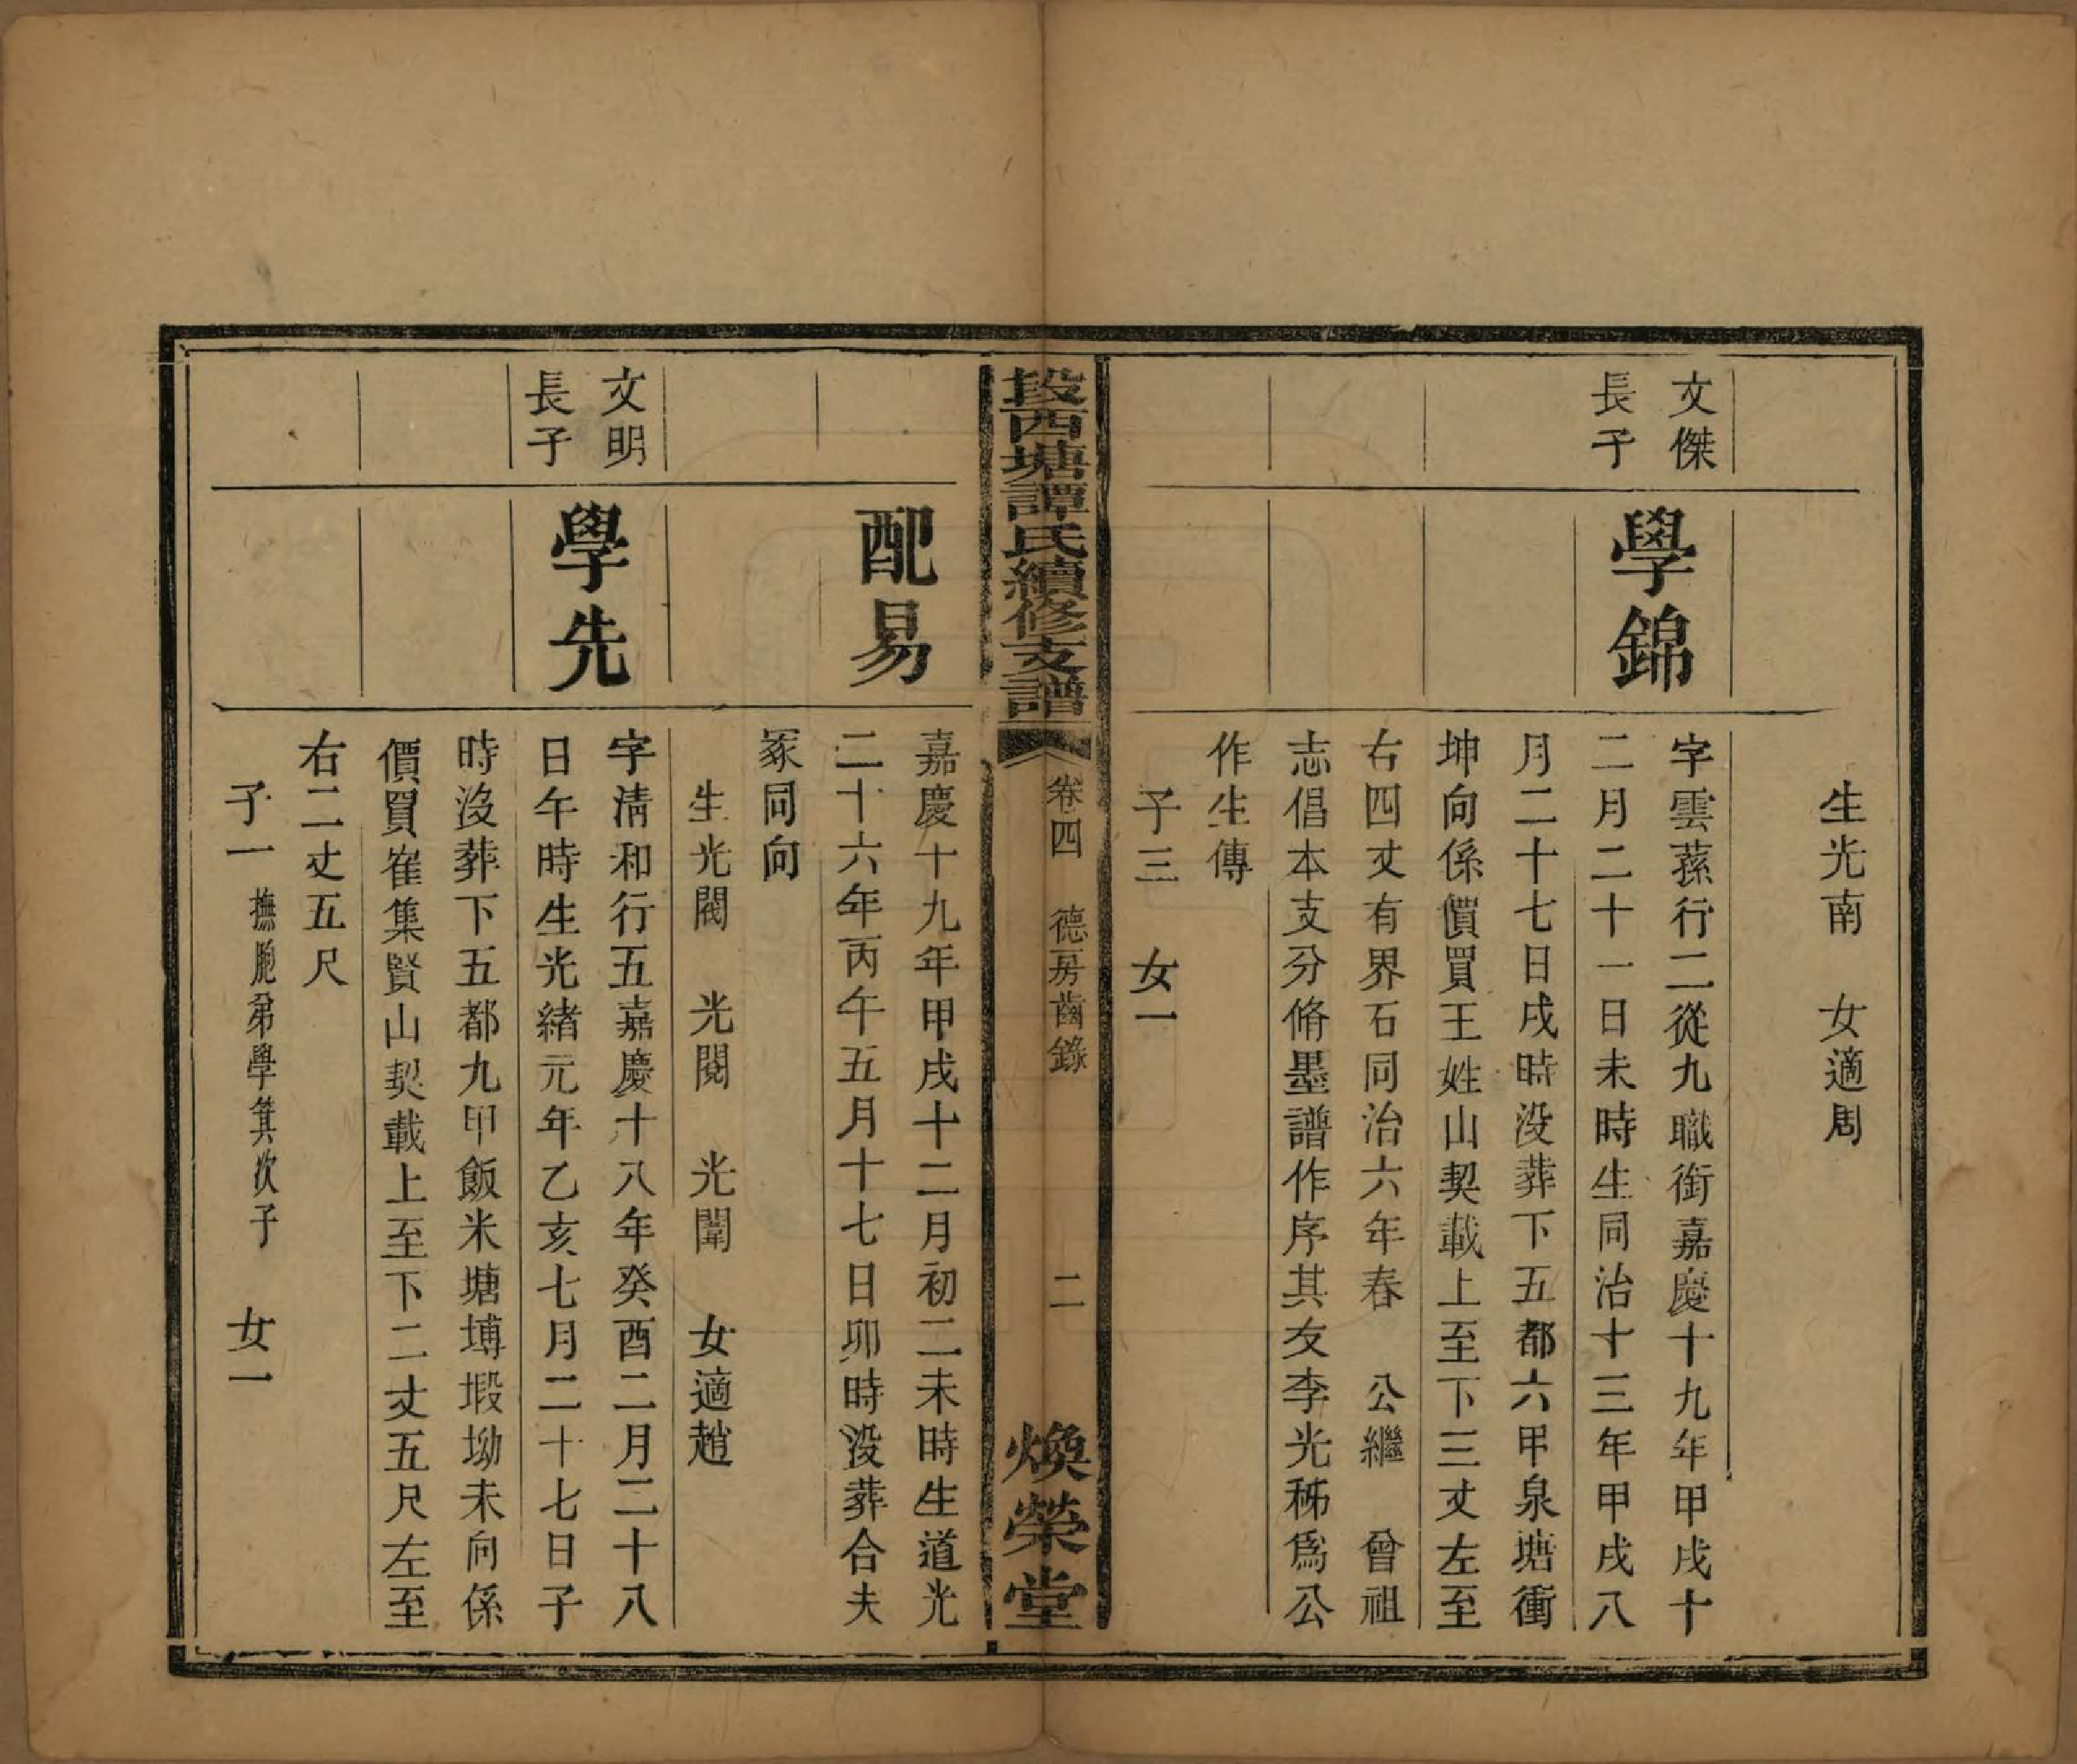 生光南　女適周
文傑
長子
學錦
字雲蓀行二從九職銜嘉慶十九年甲戌十
二月二十一日未時生同治十三年甲戌八
月二十七日戌時没葬下五都六甲泉塘衝
坤向係價買王姓山契載上至下三丈左至
右四丈有界石同治六年春　公繼　曾祖
志倡本支分脩墨譜作序其友李光秭爲公
作生傳
子三　女一
段西塘譚氏續修支譜
卷四　德房齒錄
二
煥榮堂
配易
嘉慶十九年甲戌十二月初二未時生道光
二十六年丙午五月十七日卯時没葬合夫
冢同向
生光閥　光閱　光闈　女適趙
文明
長子
學先
字清和行五嘉慶十八年癸酉二月二十八
日午時生光緒元年乙亥七月二十七日子
時没葬下五都九甲飯米塘塼塅坳未向係
價買崔集賢山契載上至下二丈五尺左至
右二丈五尺
子一 撫胞弟學箕次子　女一